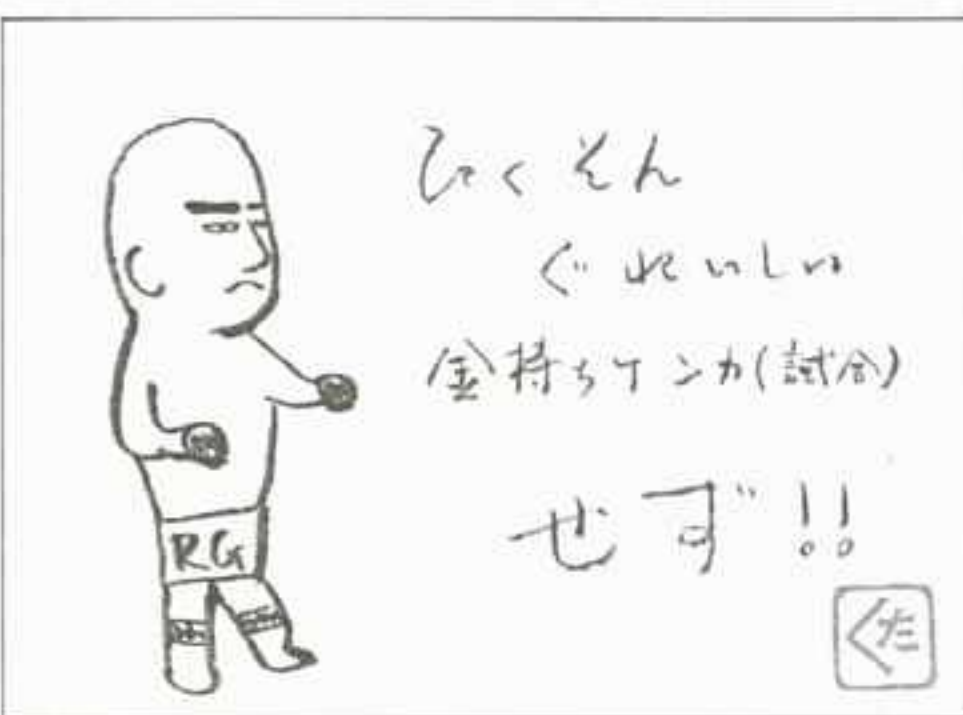 ひくそん
ぐれいしい
金持ちケンカ(試合)
せず!!
RG
くだ